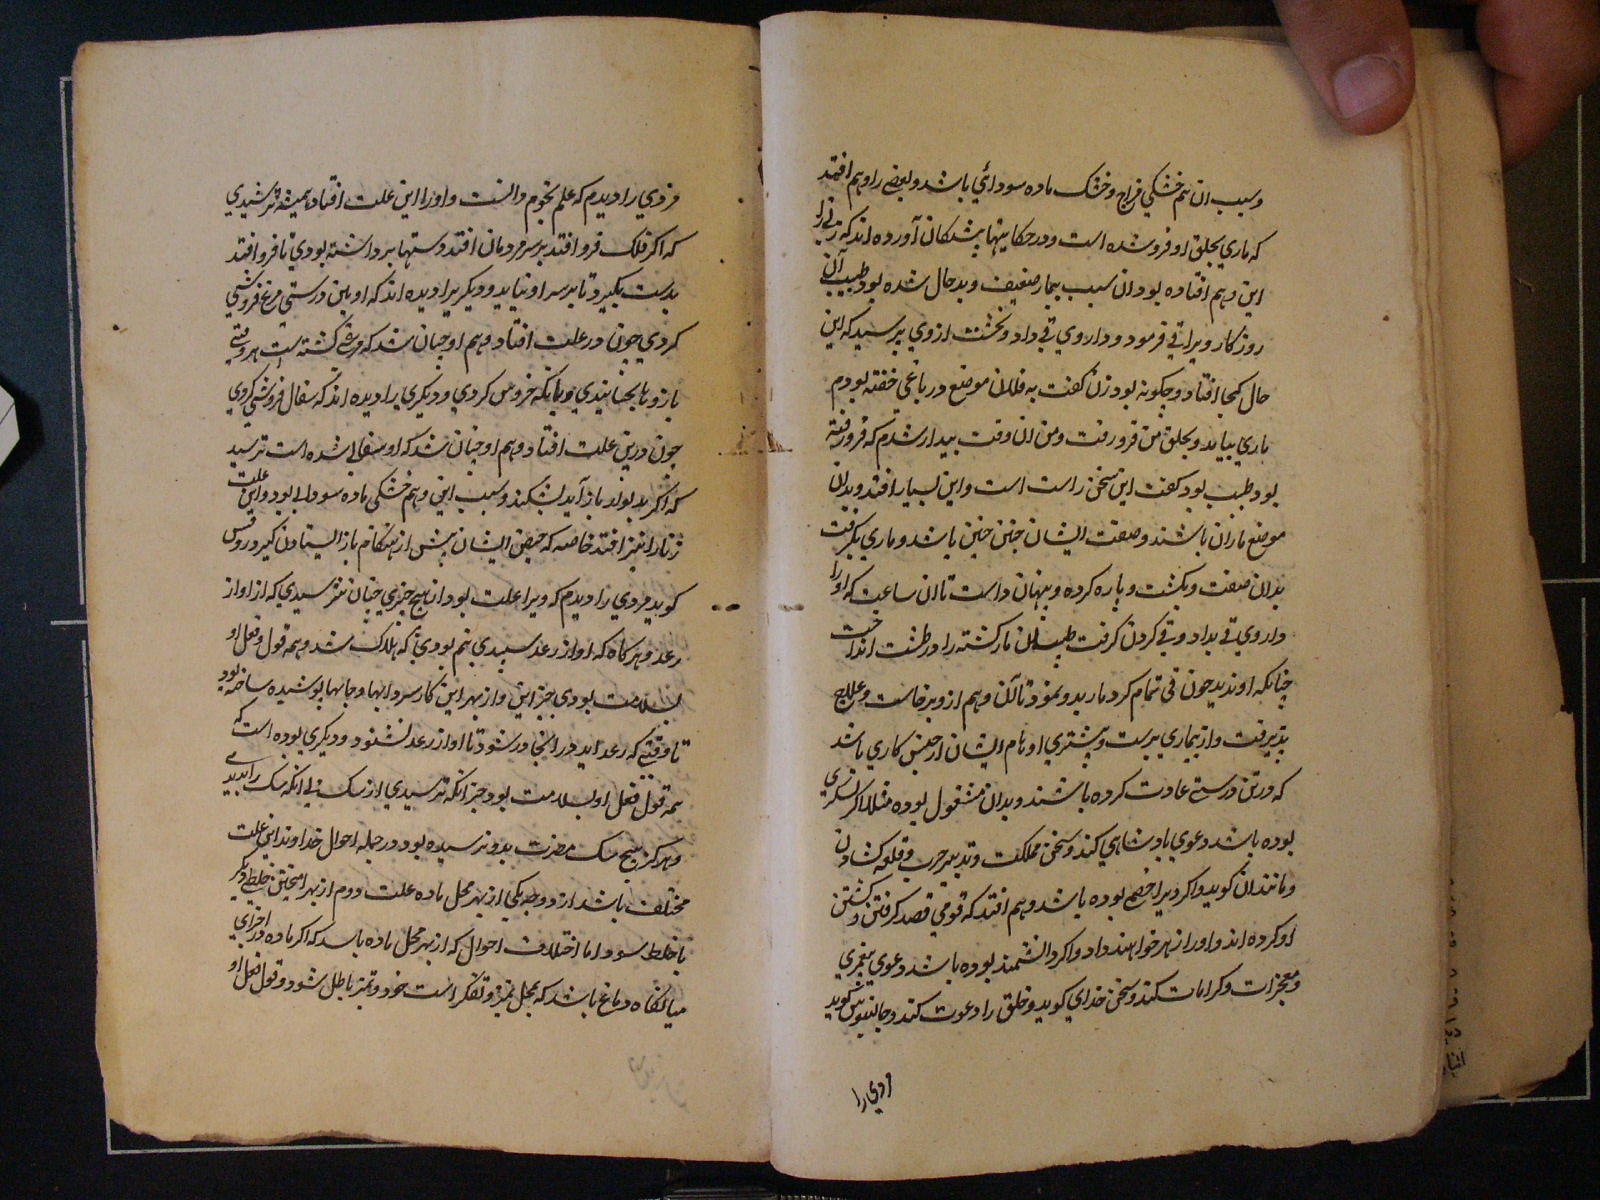 وسبب ان هم خشکی مزاج و خشک ماده سودائی باشد و بعضی را وهم افتد
که ماری بحلق او فرو شده است و در حکایتهاء پزشکان آورده اند که زنی را
این وهم افتاده بود ان سبب بیمار ضعیف و بدحال شده بود طبیب آن
روزکار ویرا قی فرمود و داروی قی داد و نخست ازوی پرسید که این
حال کجا افتاد و چکونه بود زن کفت به فلان موضع در باغی خفته بودم
ماری بیامد و بحلق من فرو رفت و من ان وقت بیدار شدم که فرو رفته
بود طبیب بود کفت این سخن راست است و این بسیار افتد و بدان
موضع ماران باشند و صفت ایشان چنین چنین باشد و ماری بکرفت
بدان صفت و بکشت و پاره کرده و پنهان داشت تا ان ساعت که او را
داروی قی بداد و قی کردن کرفت طبیب ان مار کشته را در طشت انداخت
چنانکه او ندید چون قی تمام کرد مار بدو نمود تا آن وهم ازو برخاست و علاج
پذیرفت و از بیماری برست و بیشتری اوهام ایشان از جنس کاری باشد
که در تن درستی عادت کرده باشند و بدان مشغول بوده مثلا اکر لشکری
بوده باشد دعوی پادشاهی کند و سخن مملکت و تدبیر حرب و قلعه کشادن
و مانند ان کوید و اکر ویرا خصم بوده باشد وهم افتد که قومی قصد کرفتن و کشتن
او کرده اند و او را زهر خواهند داد و اکر دانشمند بوده باشد دعوی پیغمبری
و معجزات و کرامات کند و سخن خدای کوید و خلق را دعوت کند و جالینوس کوید
مردی را
مردی را دیدم که علم نجوم دانست و او را این علت افتاد همیشه ترسیدی
که اکر فلک فرو افتد بر سر مردمان افتد دستها برداشته بودی تا فرو افتد
بدست بکیرد تا بر سر او نیاید و دیکر یرا دیده اند که او بتن درستی مرغ فروشی
کردی چون در علت افتاد وهم او چنان شد که مرغی کشته است هر وقتی
بازوها بجنبانیدی و بانکه خروس کردی و دیکری یرا دیده اند که سفال فروشی کردی
چون درین علت افتاد وهم او چنان شد که او سفالی شده است ترسید
که اکر بدیوار باز آید بشکند و سبب این وهم خشکی ماده سودایی بود و این علت
زنانرا نیز افتد خاصه که حیض ایشان پیش از هنکام باز ایستادن کیرد روفس
کوید مردی را دیدم که ویرا علت بود از هیچ چیزی چنان نترسیدی که از اواز
رعد و هر کاه که اواز رعد شنیدی بیم بودی که هلاک شد و همه قول و فعل او
بسلامت بودی جز این و از بهر این کار سردابها و جایها پوشیده ساخته بود
تا وقتی که رعد اید در انجا در شود تا اواز رعد نشنود و دیکری بوده است که
همه قول و فعل او بسلامت بود جز انکه ترسیدی از سک بی انکه سک را بدیدی
و هرکز هیچ سک مضرت بدو نرسیده بود و در جمله احوال خداوند این علت
مختلف باشد از دو وجه یکی از بهر محل ماده علت دوم از بهر امیختن خلطی دیکر
با خلط سودا اما اختلاف احوال که از بهر محل ماده باشد که اکر ماده در اجزای
میانکاه دماغ باشد که محل تمیز و تفکر است خرد و تمیز باطل شود و قول و فعل او